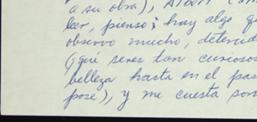 a su obra),
leer, pienso; hay algo qu
observo mucho, detenid
(¡qué seres tan curiosos
belleza hasta en el pas
pose), y me cuesta son